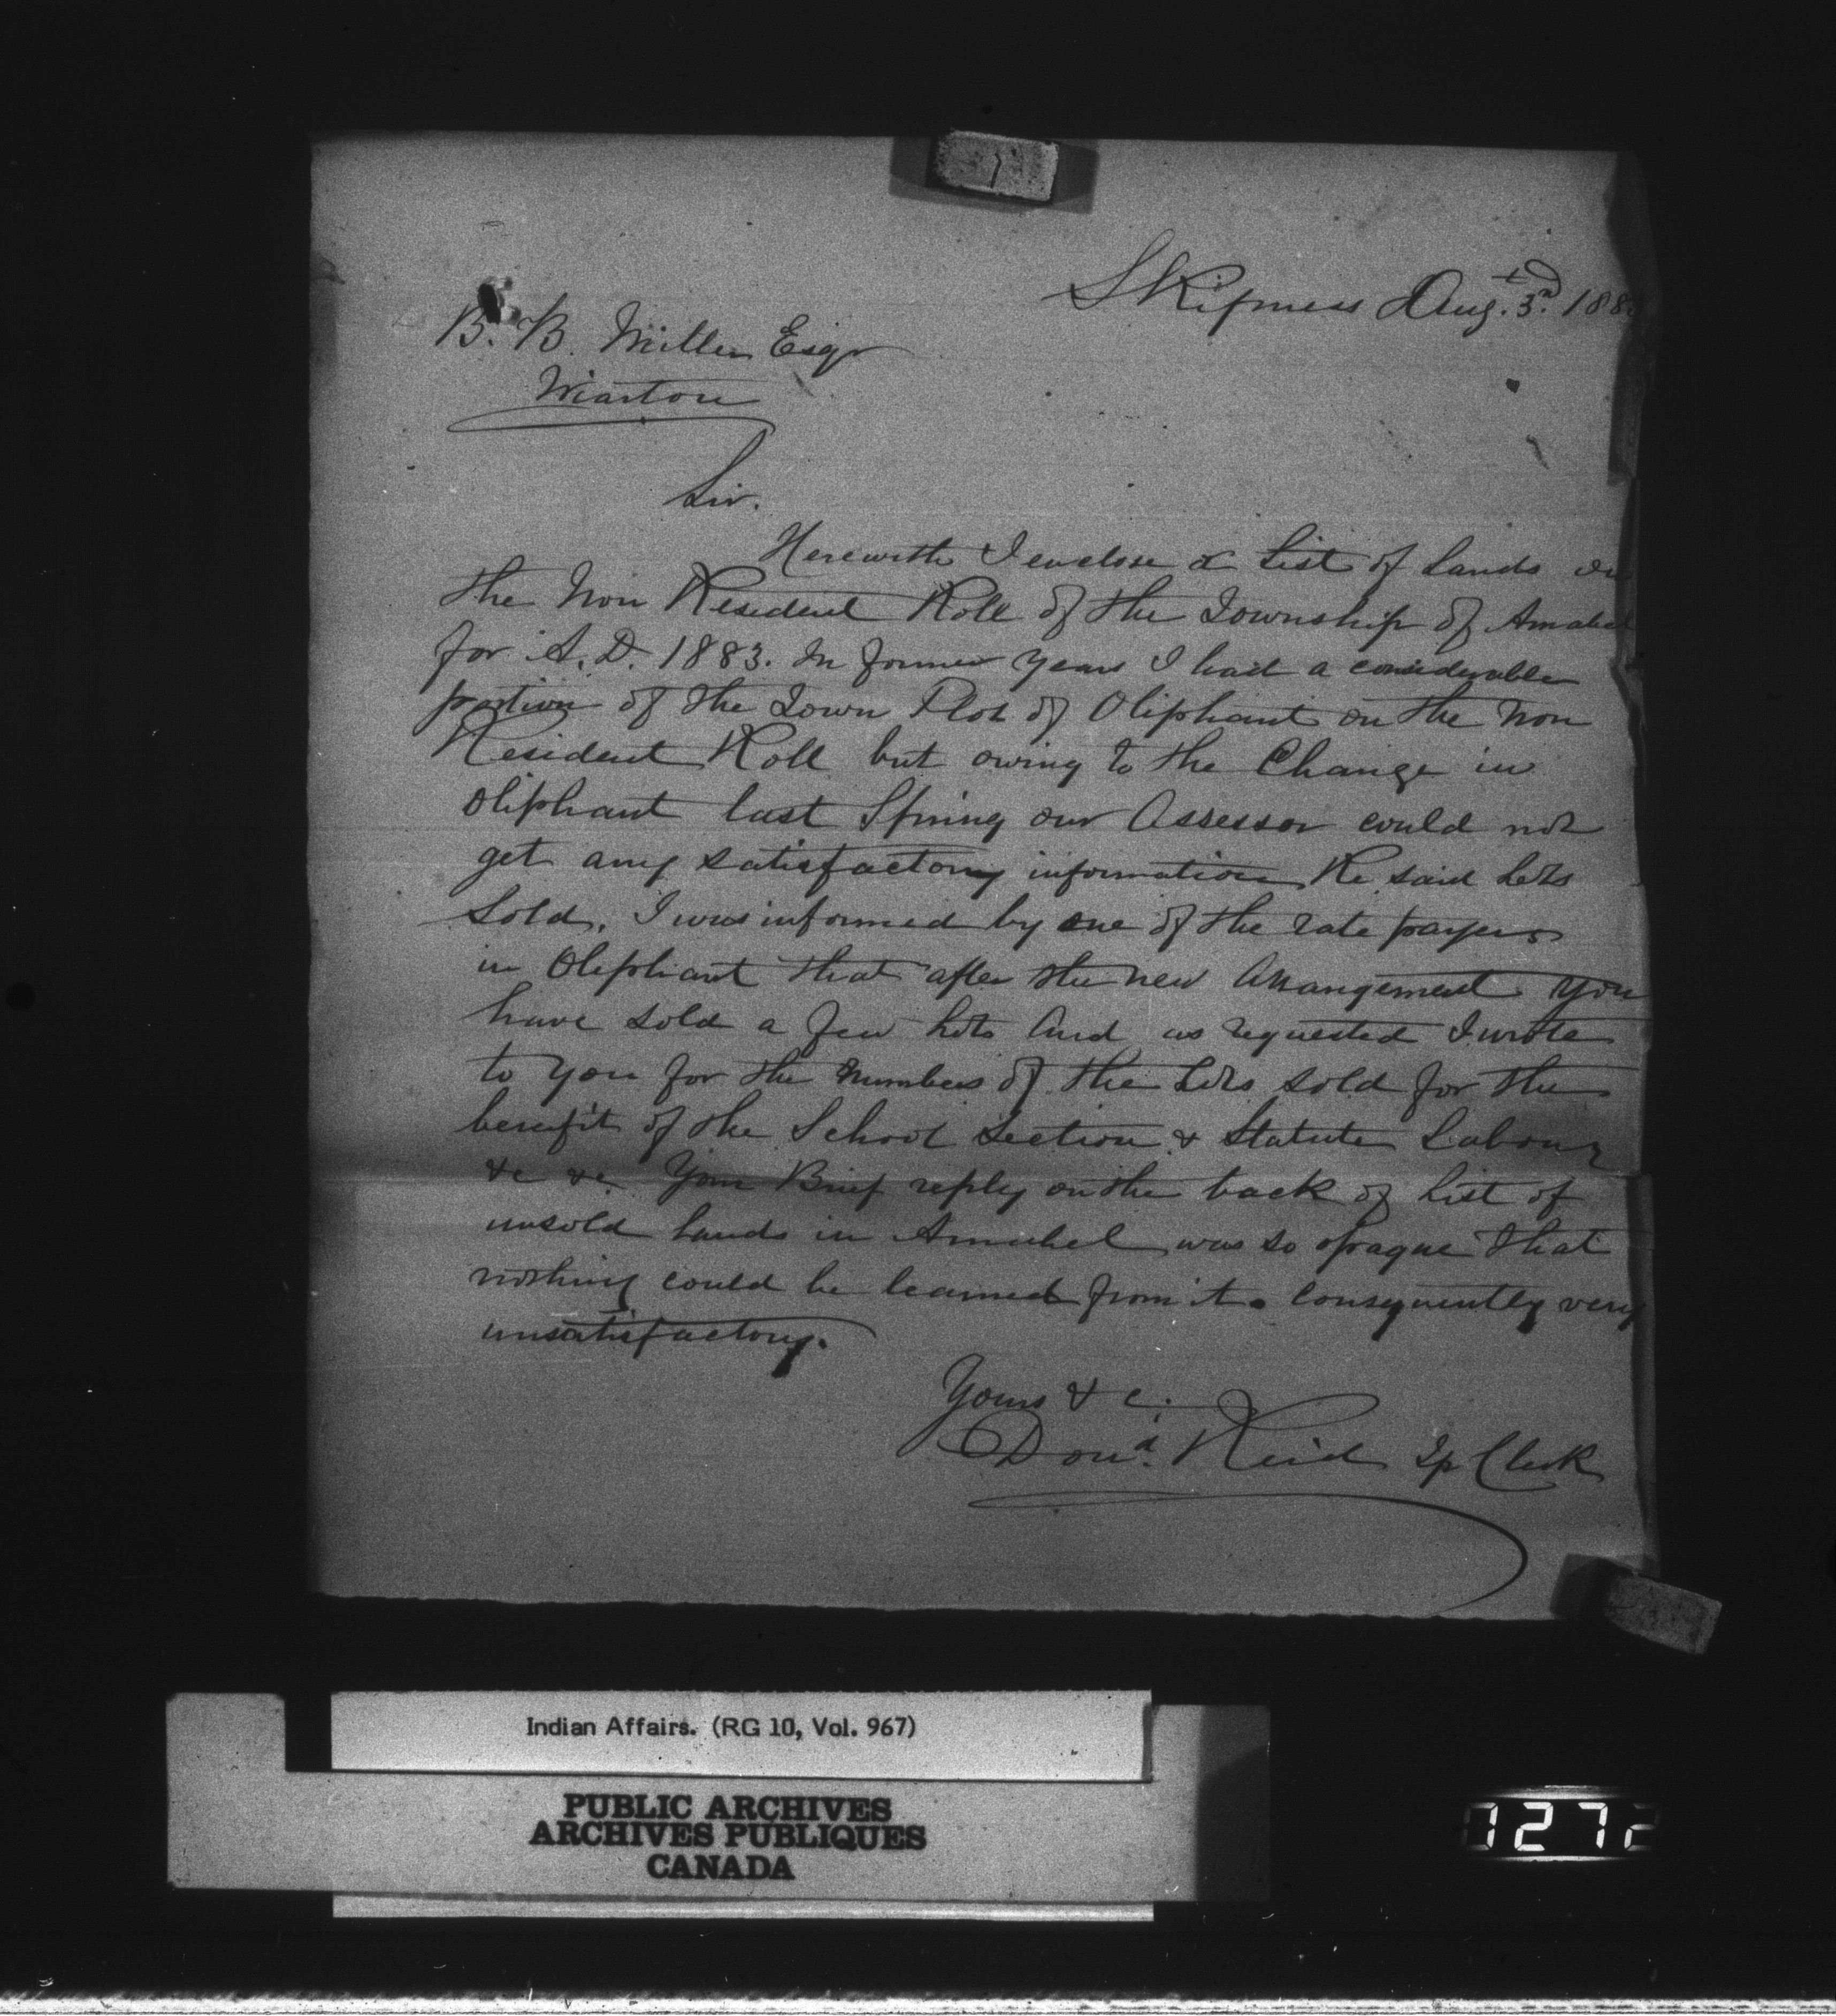 Skipness Aug. 3rd 188
B. B. Miller Esqr
Wiarton
Sir.
Herewith I enclose a List of Lands on
the Non Resident Roll of the Township of Amabel
for A.D. 1883. In former years I had a considerable
portion of the Town Plot of Oliphant on the Non
Resident Roll but owing to the Change in
Oliphant last Spring our Assessor could not
get any satisfactory information Re said Lots
Sold. I was informed by one of the rate payers
in Oliphant that after the new Arrangement you
have sold a few Lots And as requested I wrote
to you for the numbers of the Lots sold for the
benefit of the School Section & Statute Labour
&c &c Your Brief reply on the back of List of
unsold Lands in Amabel was so opaque that
nothing could be learned from it. Consequently very
unsatisfactory.
Yours & c.
Dond. Reid Tp Clerk
Indian Affairs. (RG 10, Vol. 967)
PUBLIC ARCHIVES
ARCHIVES PUBLIQUES
CANADA
1272